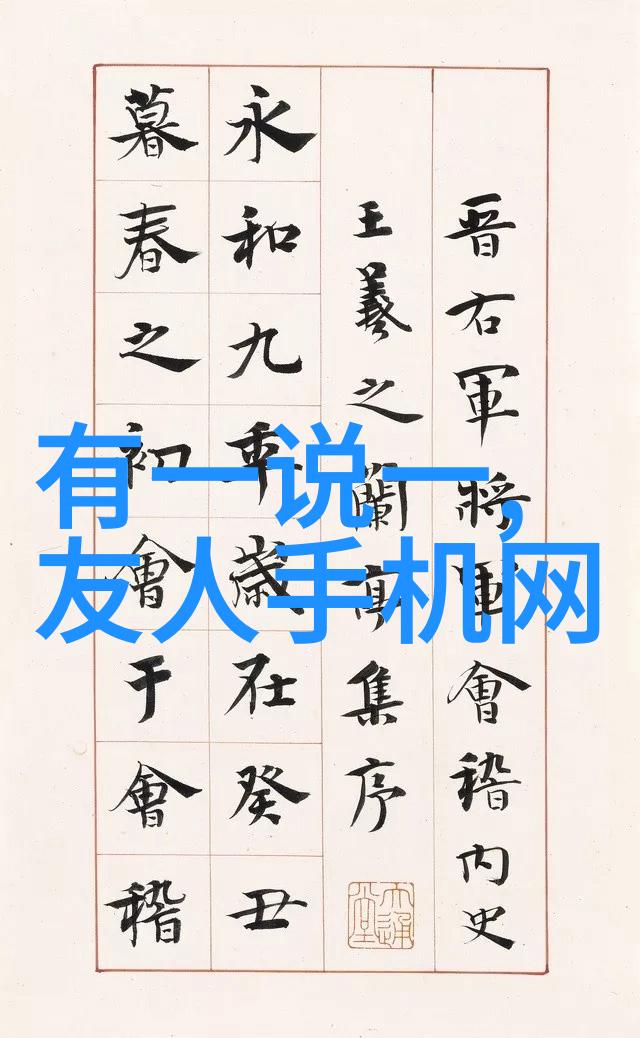 晋右軍將軍會稽内史
王羲之蘭亭集序
永和九年歲在癸丑
暮春之初會于會稽
有一说一,
友人手机网